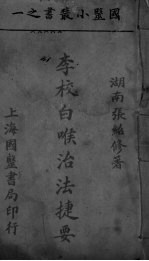 國醫小叢書之一
湖南張紹修著
李校白喉治法捷要
上海國醫書局印行